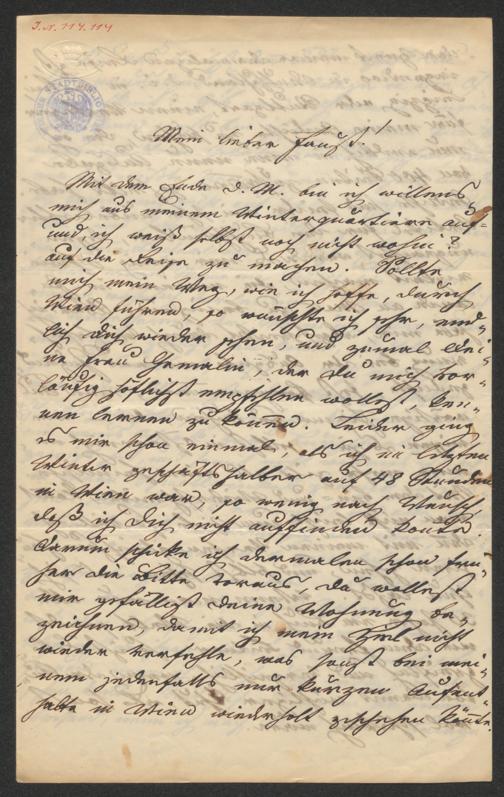 I.N. 114.114
Mein lieber Faust!
Mit dem Ende d. M. bin ich willens
mich aus meinem Winterquartiere auf=
und, ich weiß selbst noch nicht wohin?
auf die Reise zu machen. Sollte
mich mein Weg, wie ich hoffe, durch
Wien führen, so wünschte ich sehr, end=
lich Dich wieder sehen, und zumal Dei=
ne Frau Gemalin, der Du mich vor=
läufig höflichst empfehlen wollest, ken=
nen lernen zu können. Leider ging
es mir schon einmal, als ich im letzten
Winter geschäftshalber auf 48 Stunden
in Wien war, so wenig nach Wunsch,
daß ich Dich nicht auffinden konte.
Darum schicke ich dermalen schon frü=
her die Bitte voraus, Du wollest
mir gefälligst Deine Wohnung be=
zeichnen, damit ich mein Ziel nicht
wieder verfehle, was sonst bei mei=
nem jedenfalls nur kurzen Aufent=
halte in Wien wiederholt geschehen könte.